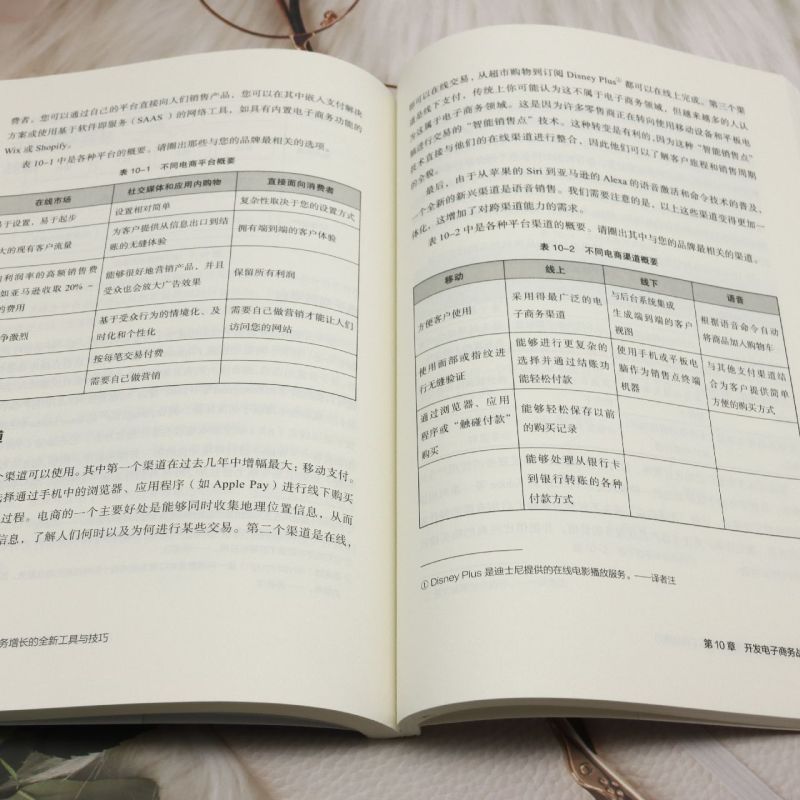 费者。您可以通过自己的平台直接向人们销售产品，您可以在其中嵌入支付解决
方案或使用基于软件即服务（SAAS）的网络工具，如具有内置电子商务功能的
Wix 或 Shopify。
表 10-1 中是各种平台的概要。请圈出那些与您的品牌最相关的选项。
表 10-1 不同电商平台概要
在线市场 社交媒体和应用内购物 直接面向消费者
易于设置，易于起步 设置相对简单 复杂性取决于您的设置方式
大的现有客户流量 为客户提供从信息出口到结 拥有端到端的客户体验
账的无缝体验
利润率的高额销售费 能够很好地营销产品，并且 保留所有利润
如亚马逊收取 20% ~ 受众也会放大广告效果
的费用
争激烈 基于受众行为的情境化、及 需要自己做营销才能让人们
时化和个性化 访问您的网站
按每笔交易付费
需要自己做营销
道
个渠道可以使用。其中第一个渠道在过去几年中增幅最大：移动支付。
选择通过手机中的浏览器、应用程序（如 Apple Pay）进行线下购买
过程。电商的一个主要好处是能够同时收集地理位置信息，从而
信息，了解人们何时以及为何进行某些交易。第二个渠道是在线，
务增长的全新工具与技巧
可以在线交易，从超市购物到订阅 Disney Plus① 都可以在线上完成。第三个渠
道是线下支付，传统上你可能认为这不属于电子商务领域，但越来越多的人认
为这属于电子商务领域。这是因为许多零售商正在转向使用移动设备和平板电
脑进行交易的“智能销售点”技术。这种转变是有利的，因为这种“智能销售点”
技术直接与他们的在线渠道进行整合，因此他们可以了解客户旅程和销售周期
的全貌。
最后，由于从苹果的 Siri 到亚马逊的 Alexa 的语音激活和命令技术的普及，
一个全新的新兴渠道是语音销售。我们需要注意的是，以上这些渠道变得更加一
体化，这增加了对跨渠道能力的需求。
表 10-2 中是各种平台渠道的概要。请圈出其中与您的品牌最相关的渠道。
表 10-2 不同电商渠道概要
移动 线上 线下 语音
方便客户使用 采用得最广泛的电 与后台系统集成 根据语音命令自动
子商务渠道 生成端到端的客户 将商品加入购物车
视图
使用面部或指纹进 能够进行更复杂的 使用手机或平板电 与其他支付渠道结
行无缝验证 选择并通过结账功 脑作为销售点终端 合为客户提供简单
能轻松付款 机器 方便的购买方式
通过浏览器、应用 能够轻松保存以前
程序或“触碰付款” 的购买记录
购买
能够处理从银行卡
到银行转账的各种
付款方式
① Disney Plus 是迪士尼提供的在线电影播放服务。——译者注
第 10 章 开发电子商务战